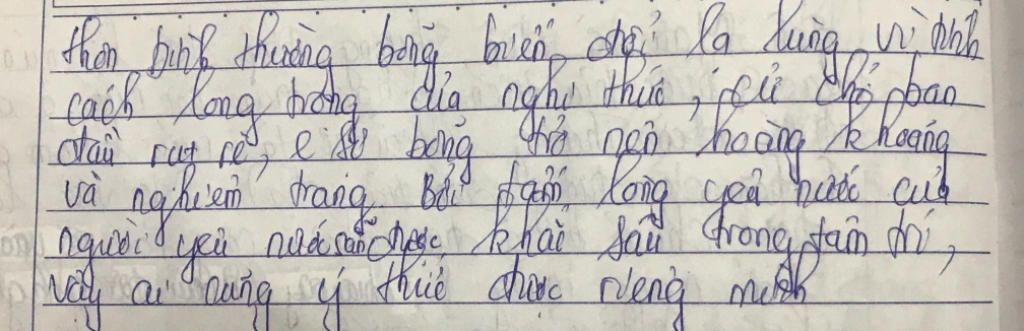 thôn bình thường bỗng biến đổi lạ lùng vì tính
cách long trọng của nghi thức, cử chỉ ban
đầu rụt rè, e sợ bỗng trở nên hoàng khoang
và nghiêm trang. Bởi tấm lòng yêu nước của
người yêu nước khắc sâu trong tâm trí,
vậy ai cũng ý thức được riêng mình